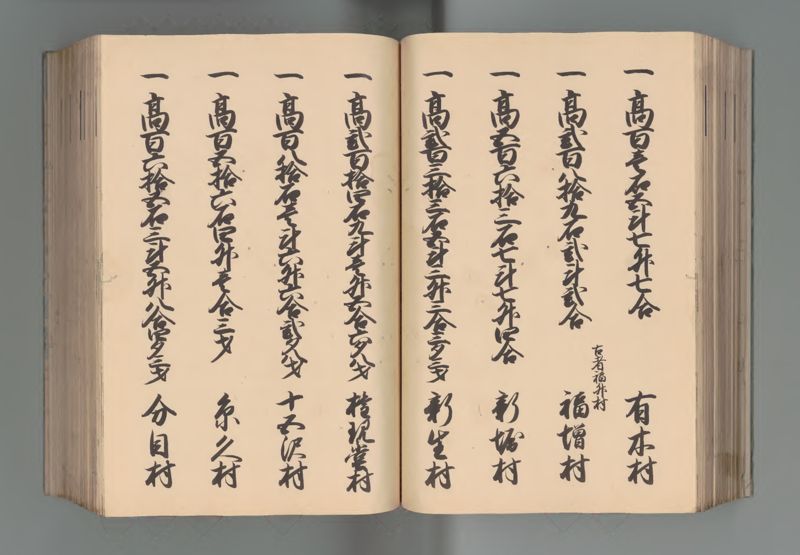 一 高百壱石五斗七升七合 有木村
一 高弐百八拾九石弐斗弐合 福増村
古者福升村
一 高五百六拾三石七斗七升四合 新堀村
一 高弐百三拾三石五斗二升二合三夕二才 新生村
一 高弐百拾四石九斗壱升五合六夕八才 権現堂村
一 高百八拾石壱斗六升六合弐夕八才 十五沢村
一 高百五拾六石四升壱合三才 糸久村
一 高百六拾五石三斗五升八合四夕三才 分目村